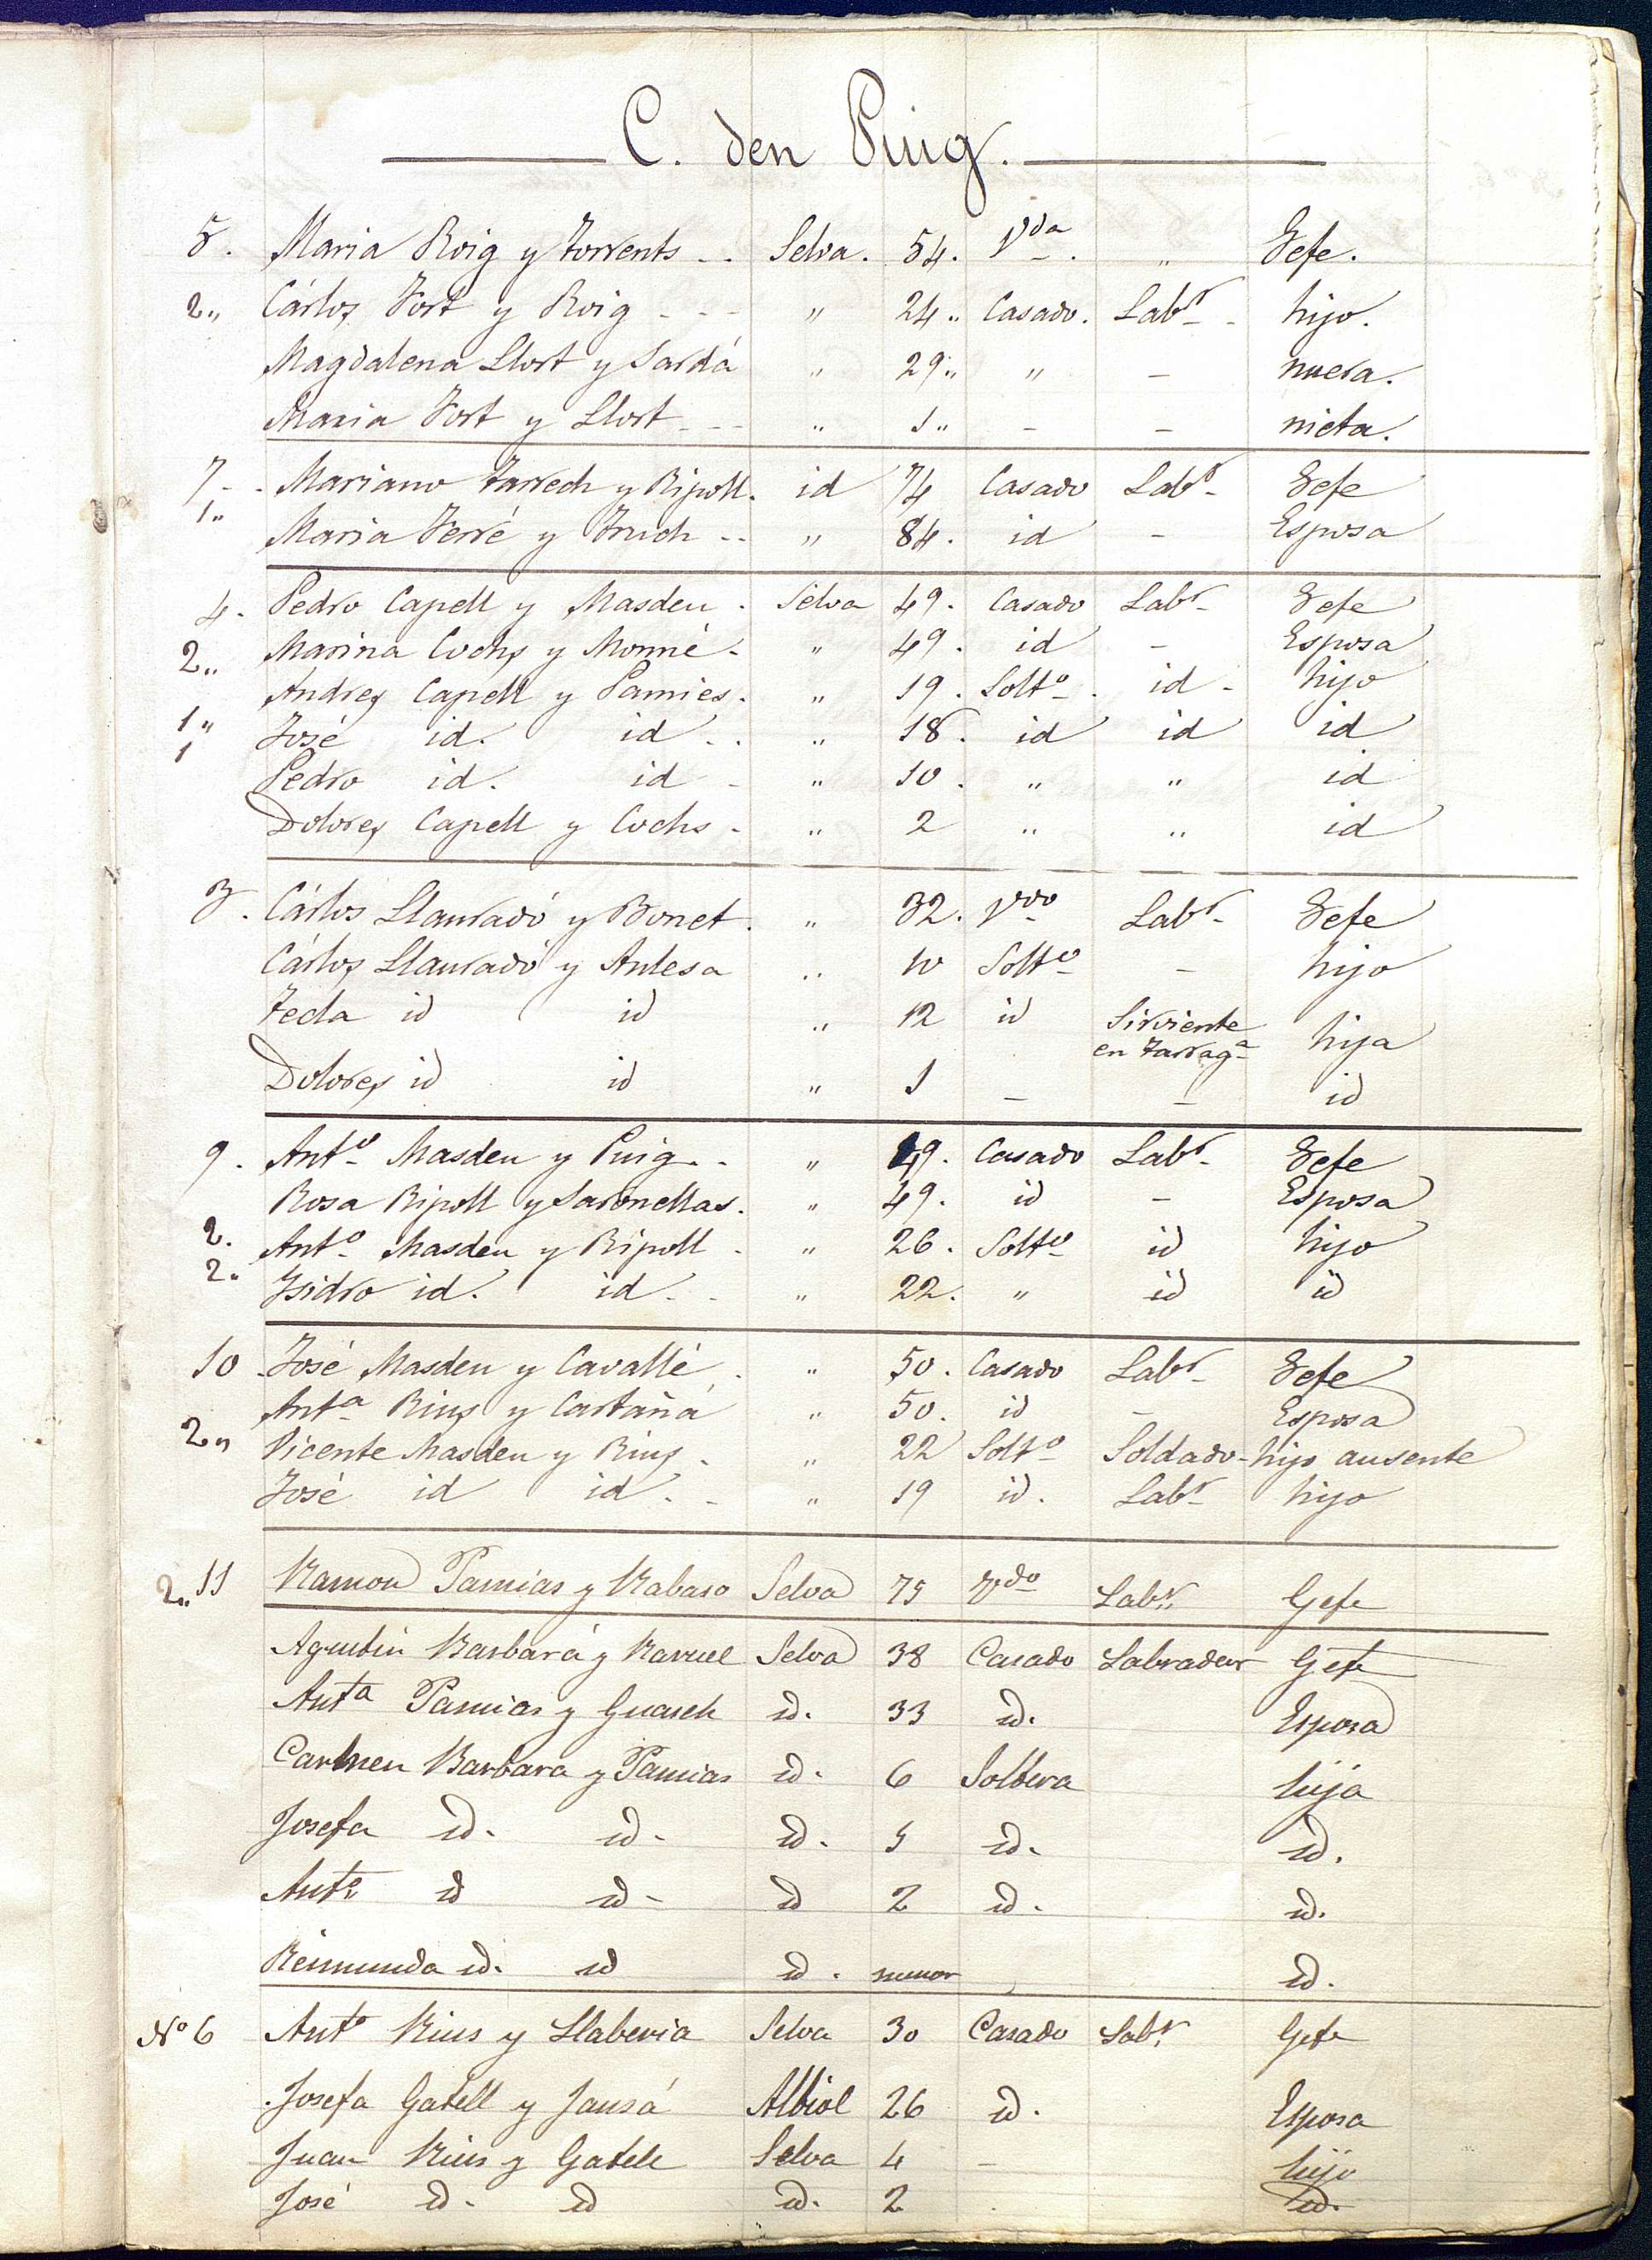 C. den Puig.
5. Maria Roig y Torrents - - Selva. 54. Vda. " Gefe.
2" Cárlos Fort y Roig - - - " 24" Casado. Labr - hijo.
Magdalena Llort y Sardá " 29" " - nuera.
Maria Fort y Llort - - - " 1" - - nieta.
7 - - Mariano Tarrech y Ripoll. id 74 Casado Labr - Gefe
1" Maria Ferré y Truch - - " 84. id - Esposa
4. Pedro Capell y Masdeu. Selva 49. Casado Labr - Gefe
2" Marina Cochs y Monné. " 49. id - Esposa
Andres Capell y Pamies. " 19. Solto. id - hijo
1" José id. id - . " 18. id id id
1 Pedro id. id - " 10. " " id
Dolores Capell y Cochs - " 2 " " id
3. Cárlos Llauradó y Bonet. " 32. Vdo Labr - Gefe
Cárlos Llauradó y Antesa " 10 Solto - hijo
Tecla id id " 12 id Sirviente
en Tarraga hija
Dolores id id " 1 - - id
9. Anto Masdeu y Puig - - " 49. Casado Labr - Gefe
Rosa Ripoll y Saronellas. " 49. id - Esposa
2. Anto Masdeu y Ripoll - " 26. Solto id hijo
2" Isidro id. id - - " 22. " id id
10 José Masdeu y Cavallé. " 50. Casado Labr - Gefe
Anta Rius y Castañá " 50. id - Esposa
2" Vicente Masdeu y Rius. " 22 Solto Soldado - hijo ausente
José id id - - " 19 id. Labr - hijo
2" 11 Ramon Pamias y Rabaso Selva 75 Vdo Labr Gefe
Agustin Barbará y Selva 38 Casado Labrador Gefe
Anta Pamias y Guasch id. 33 id. Esposa
Carmen Barbara y Pamias id. 6 Soltera hija
Josefa id. id - id. 5 id. id.
Anta id id - id 2 id. id.
Reimunda id. id id. menor id.
No 6 Anto Rius y Llaberia Selva 30 Casado Labr Gefe
Josefa Gatell y Jansá Albiol 26 id. Esposa
Juan Rius y Gatell Selva 4 - hijo
José id. id id. 2 . id.